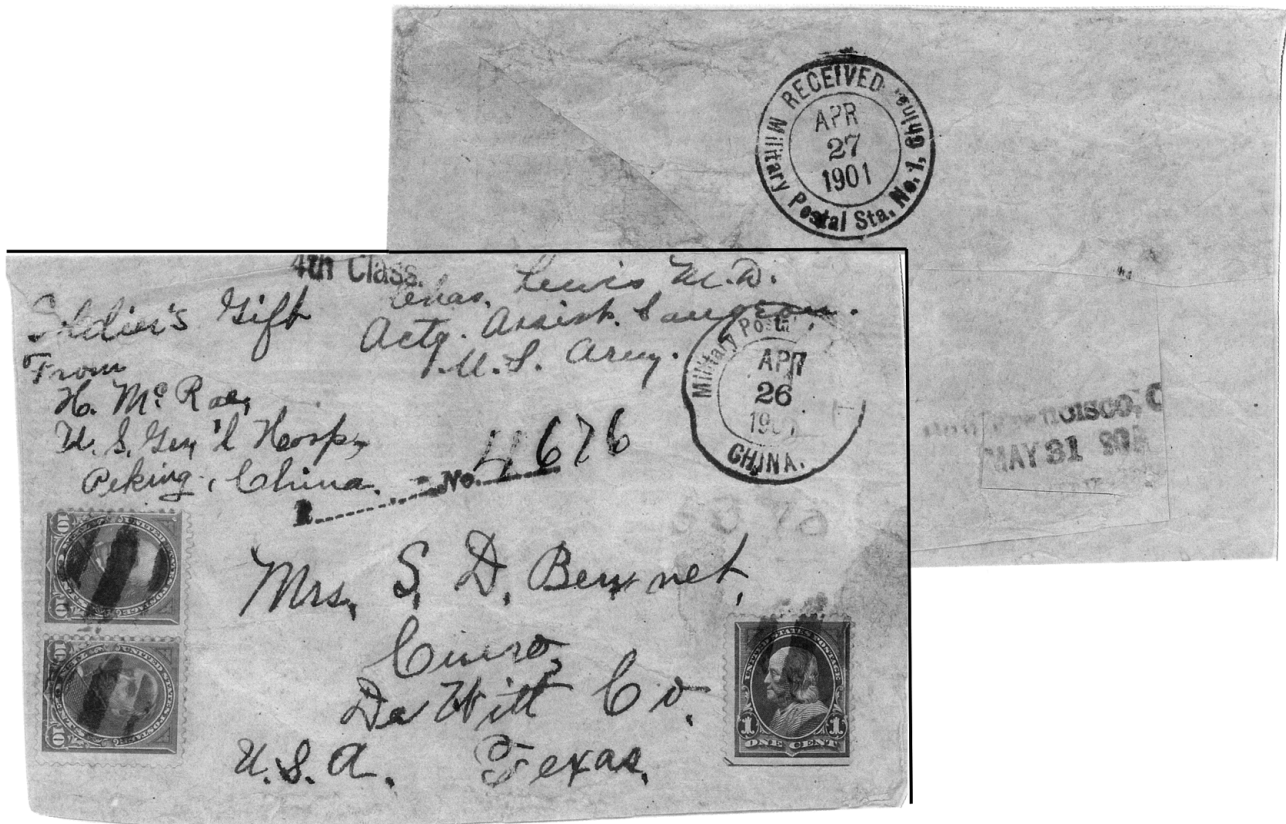 RECEIVED
APR
27
1901
Military Postal Sta. No. 1, China
4th Class.
Soldier's Gift
From
H. McRae,
U. S. Gen'l Hosp,
Peking, China.
Chas. Lewis M.D.
Actg. Assist. Surgeon.
U.S. Army.
Military Postal
APR
26
CHINA.
No. 4676
Mrs. S. D. Bennet,
Cuero,
De Witt Co.
U.S.A. Texas.
MAY 31
10 10
10 10
UNITED STATES POSTAGE
1 1
ONE CENT